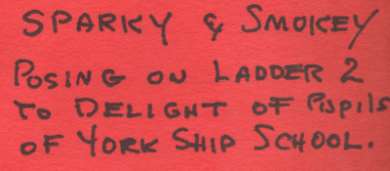 SPARKY & SMOKEY
POSING ON LADDER 2
TO DELIGHT OF PUPILS
OF YORK SHIP SCHOOL.